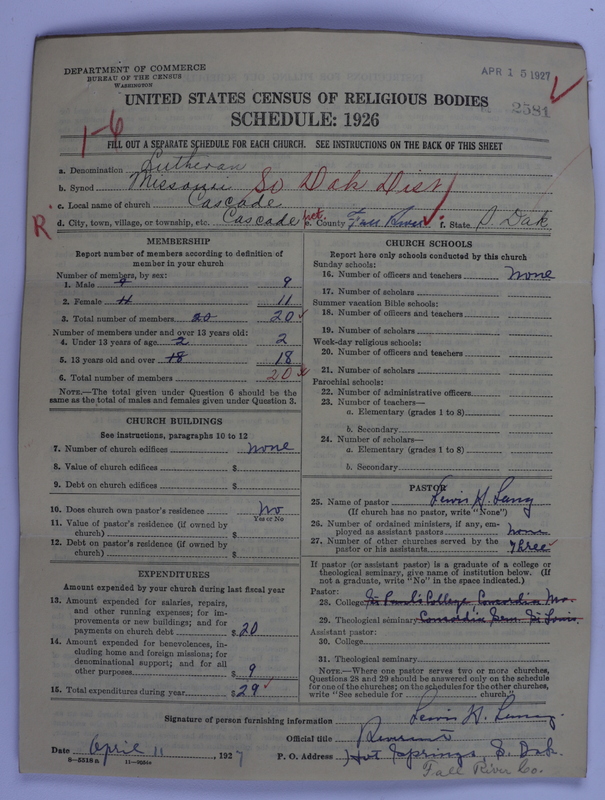 DEPARTMENT OF COMMERCE
BUREAU OF THE CENSUS
WASHINGTON
APR 15 1927
2581
UNITED STATES CENSUS OF RELIGIOUS BODIES
SCHEDULE: 1926
1-6
FILL OUT A SEPARATE SCHEDULE FOR EACH CHURCH. SEE INSTRUCTIONS ON THE BACK OF THIS SHEET
a. Denomination Lutheran
b. Synod Missouri So Dak Dist
c. Local name of church Cascade
R. d. City, town, village, or township, etc. Cascade e. County of Fall River f. State S. Dak
MEMBERSHIP
Report number of members according to definition of
member in your church
Number of members, by sex:
1. Male 9 9
2. Female 11 11
3. Total number of members 20 20
Number of members under and over 13 years old:
4. Under 13 years of age 2 2
5. 13 years old and over 18 18
6. Total number of members 20
NOTE.—The total given under Question 6 should be
same as the total of males and females given under Question 3.
CHURCH BUILDINGS
See instructions, paragraphs 10 to 12
7. Number of church edifices none
8. Value of church edifices $
9. Debt on church edifices $
10. Does church own pastor's residence no
Yes or No
11. Value of pastor's residence (if owned by
church) $
12. Debt on pastor's residence (if owned by
church) $
EXPENDITURES
Amount expended by your church during last fiscal year
13. Amount expended for salaries, repairs,
and other running expenses; for im-
provements or new buildings; and for
payments on church debt $ 20
14. Amount expended for benevolences, in-
cluding home and foreign missions; for
denominational support; and for all
other purposes 9
15. Total expenditures during year $ 29
CHURCH SCHOOLS
Report here only schools conducted by this church
Sunday schools:
16. Number of officers and teachers None
17. Number of scholars
Summer vacation Bible schools:
18. Number of officers and teachers
19. Number of scholars
Week-day religious schools:
20. Number of officers and teachers
21. Number of scholars
Parochial schools:
22. Number of administrative officers
23. Number of teachers—
a. Elementary (grades 1 to 8)
b. Secondary
24. Number of scholars—
a. Elementary (grades 1 to 8)
b. Secondary
PASTOR
25. Name of pastor Lewis H. Lang
(If church has no pastor, write "None")
26. Number of ordained ministers, if any, em-
ployed as assistant pastors none
27. Number of other churches served by the
pastor or his assistants Three
If pastor (or assistant pastor) is a graduate of a college or
theological seminary, give name of institution below. (If
not a graduate, write "No" in the space indicated.)
Pastor:
28. College St Paul's College Concordia Mo.
29. Theological seminary Concordia Sem. St Louis.
Assistant pastor:
30. College
31. Theological seminary
NOTE.—Where one pastor serves two or more churches,
Questions 28 and 29 should be answered only on the schedule
for one of the churches; on the schedules for the other churches,
write "See schedule for church."
Signature of person furnishing information Lewis H. Lang.
Official title Reverend
Date April 11, 1927 P. O. Address Hot Springs, S. Dak.
8-5518a
Fall River Co.